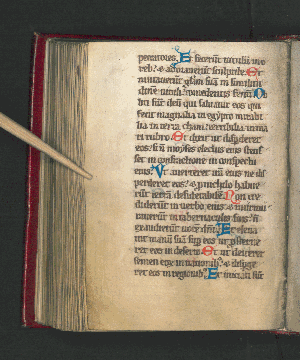 peccatores. Et fecerūt uitulū in o
reb: ⁊ adorauerūt sculptile. Et
mutauerūt gl'am suā in similitu
dinē uituli: comedentis fenū. O
bliti sūt deū qui saluauit eos qui
fecit magnalia in egypto mirabi
lia in terra cham: terribilia in ma
ri rubro. Et dixit ut disp̄deret
eos: si nō moyses electus eius stetis
set in confractione in conspectu
eius. Vt auerteret irā eius ne dis
perderet eos: ⁊ pro nichilo habue
rūt terrā desiderabilē. Non cre
diderūt in uerbo eius: ⁊ murmu
rauerūt in tabernaculis suis: nō
exaudierūt uocē dn̄i. Et eleua
uit manū suā sup eos: ut p̄sterne
ret eos in deserto. Et ut deiceret
semen eoꝝ in nationib: ⁊ disp̄ge
ret eos in regionib: Et iniciati sūt